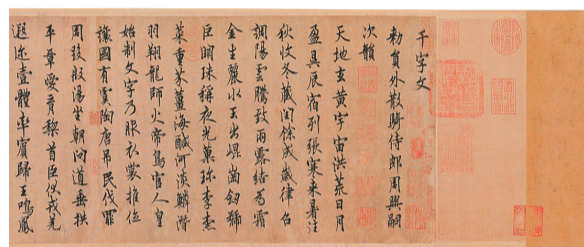 千字文
勅員外散騎侍郎周興嗣
次韻
天地玄黃宇宙洪荒日月
盈昃辰宿列張寒來暑往
秋收冬藏閏餘成歲律召
調陽雲騰致雨露結為霜
金生麗水玉出崐崗劒號
巨闕珠稱夜光菓珍李柰
菜重芥薑海鹹河淡鱗潛
羽翔龍師火帝鳥官人皇
始制文字乃服衣裳推位
讓國有虞陶唐弔民伐罪
周發殷湯坐朝問道垂拱
平章愛育黎首臣伏戎羌
遐迩壹體率賓歸王鳴鳳